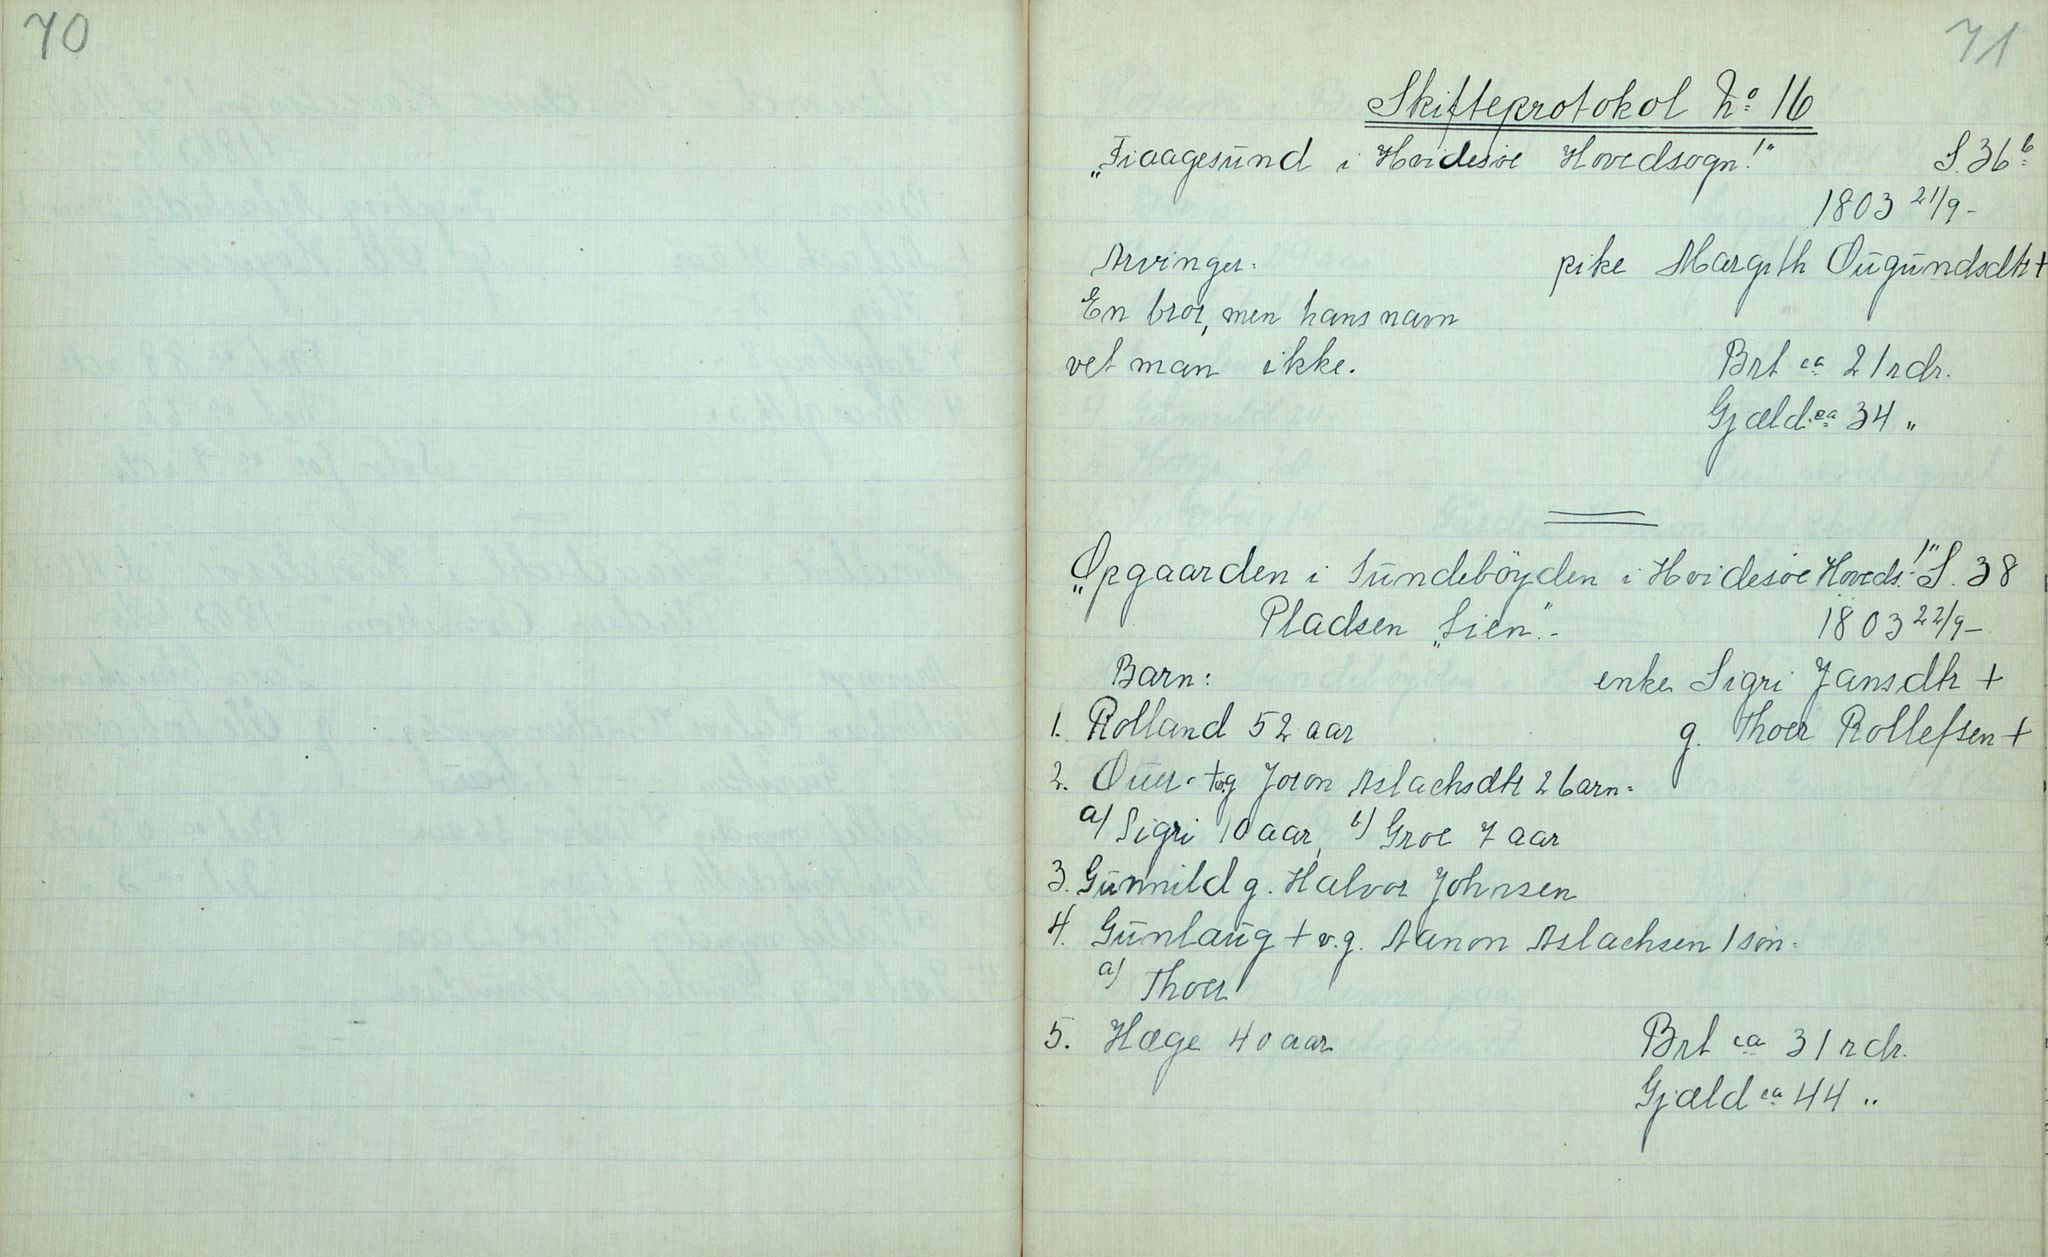 70
71
Skifteprotokol No 16
"Fiaagesund i Hvidesøe Hovedsogn!" S. 36b
1803 21/9-
Arvinger: pike Margith Ougundsdtr +
En bror, men hans navn
vet man ikke. Brt ca 21 rdr.
Gjæld ca 34 "
"Opgaarden i Sundeböyden i Hvidesøe Hoveds.!" S. 38
Pladsen "Lien".- 1803 22/9-
Barn: enke Sigri Jansdtr +
1. Rolland 52 aar g. Thoer Rollefsen +
2. Ouer + v.g Joron Aslachsdtr 2 barn:
a) Sigri 10 aar, b) Groe 7 aar
3. Gunnild g. Halvor Johnsen
4. Gunlaug + v.g. Aanon Aslachsen 1 søn:
a) Thoer
5. Hæge 40 aar Brt ca 31 rdr.
Gjæld ca 44 "